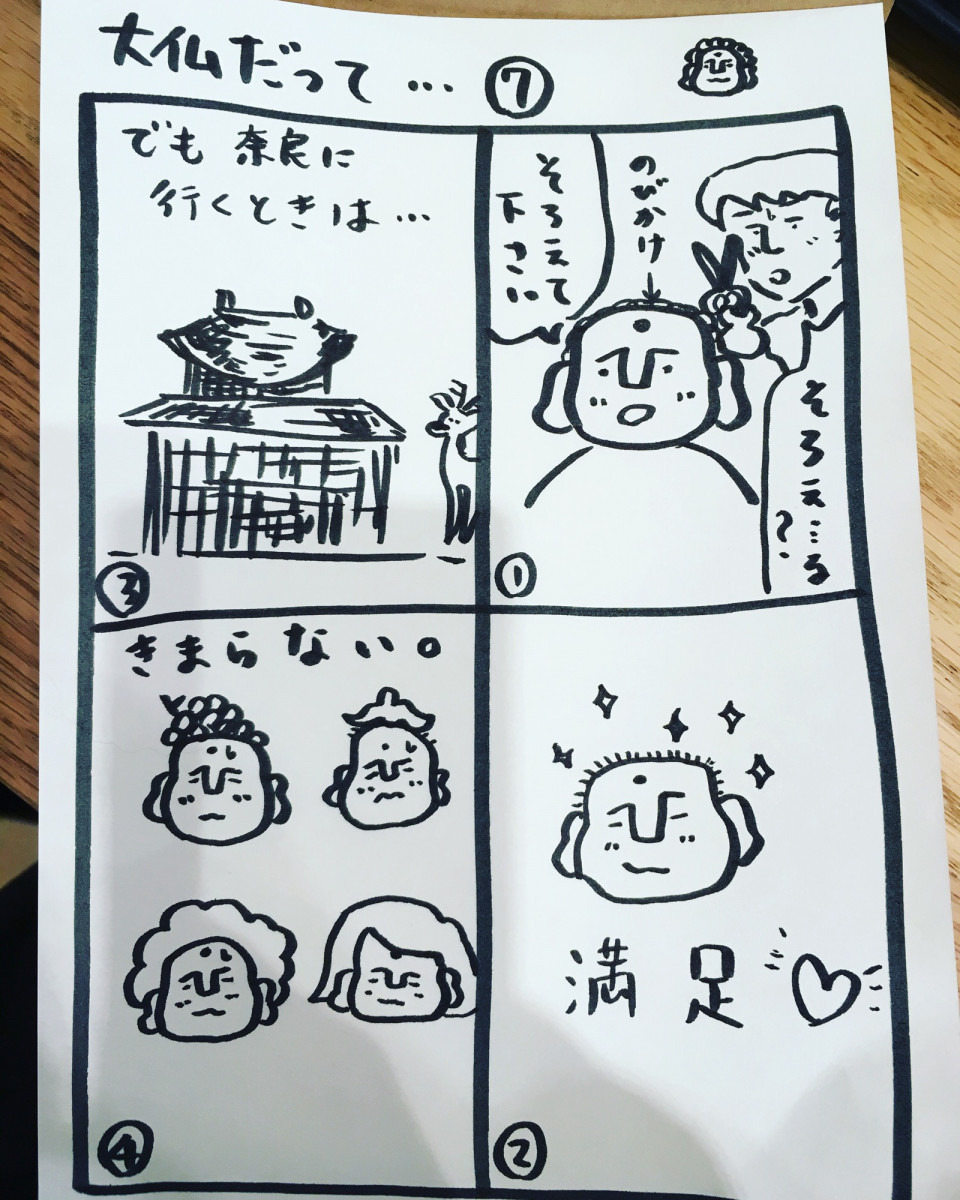 大仏だって… ⑦
のびかけ→
そろえて
下さい
そろえ…る
?
①
満足♡
②
でも 奈良に
行くときは…
③
きまらない。
④